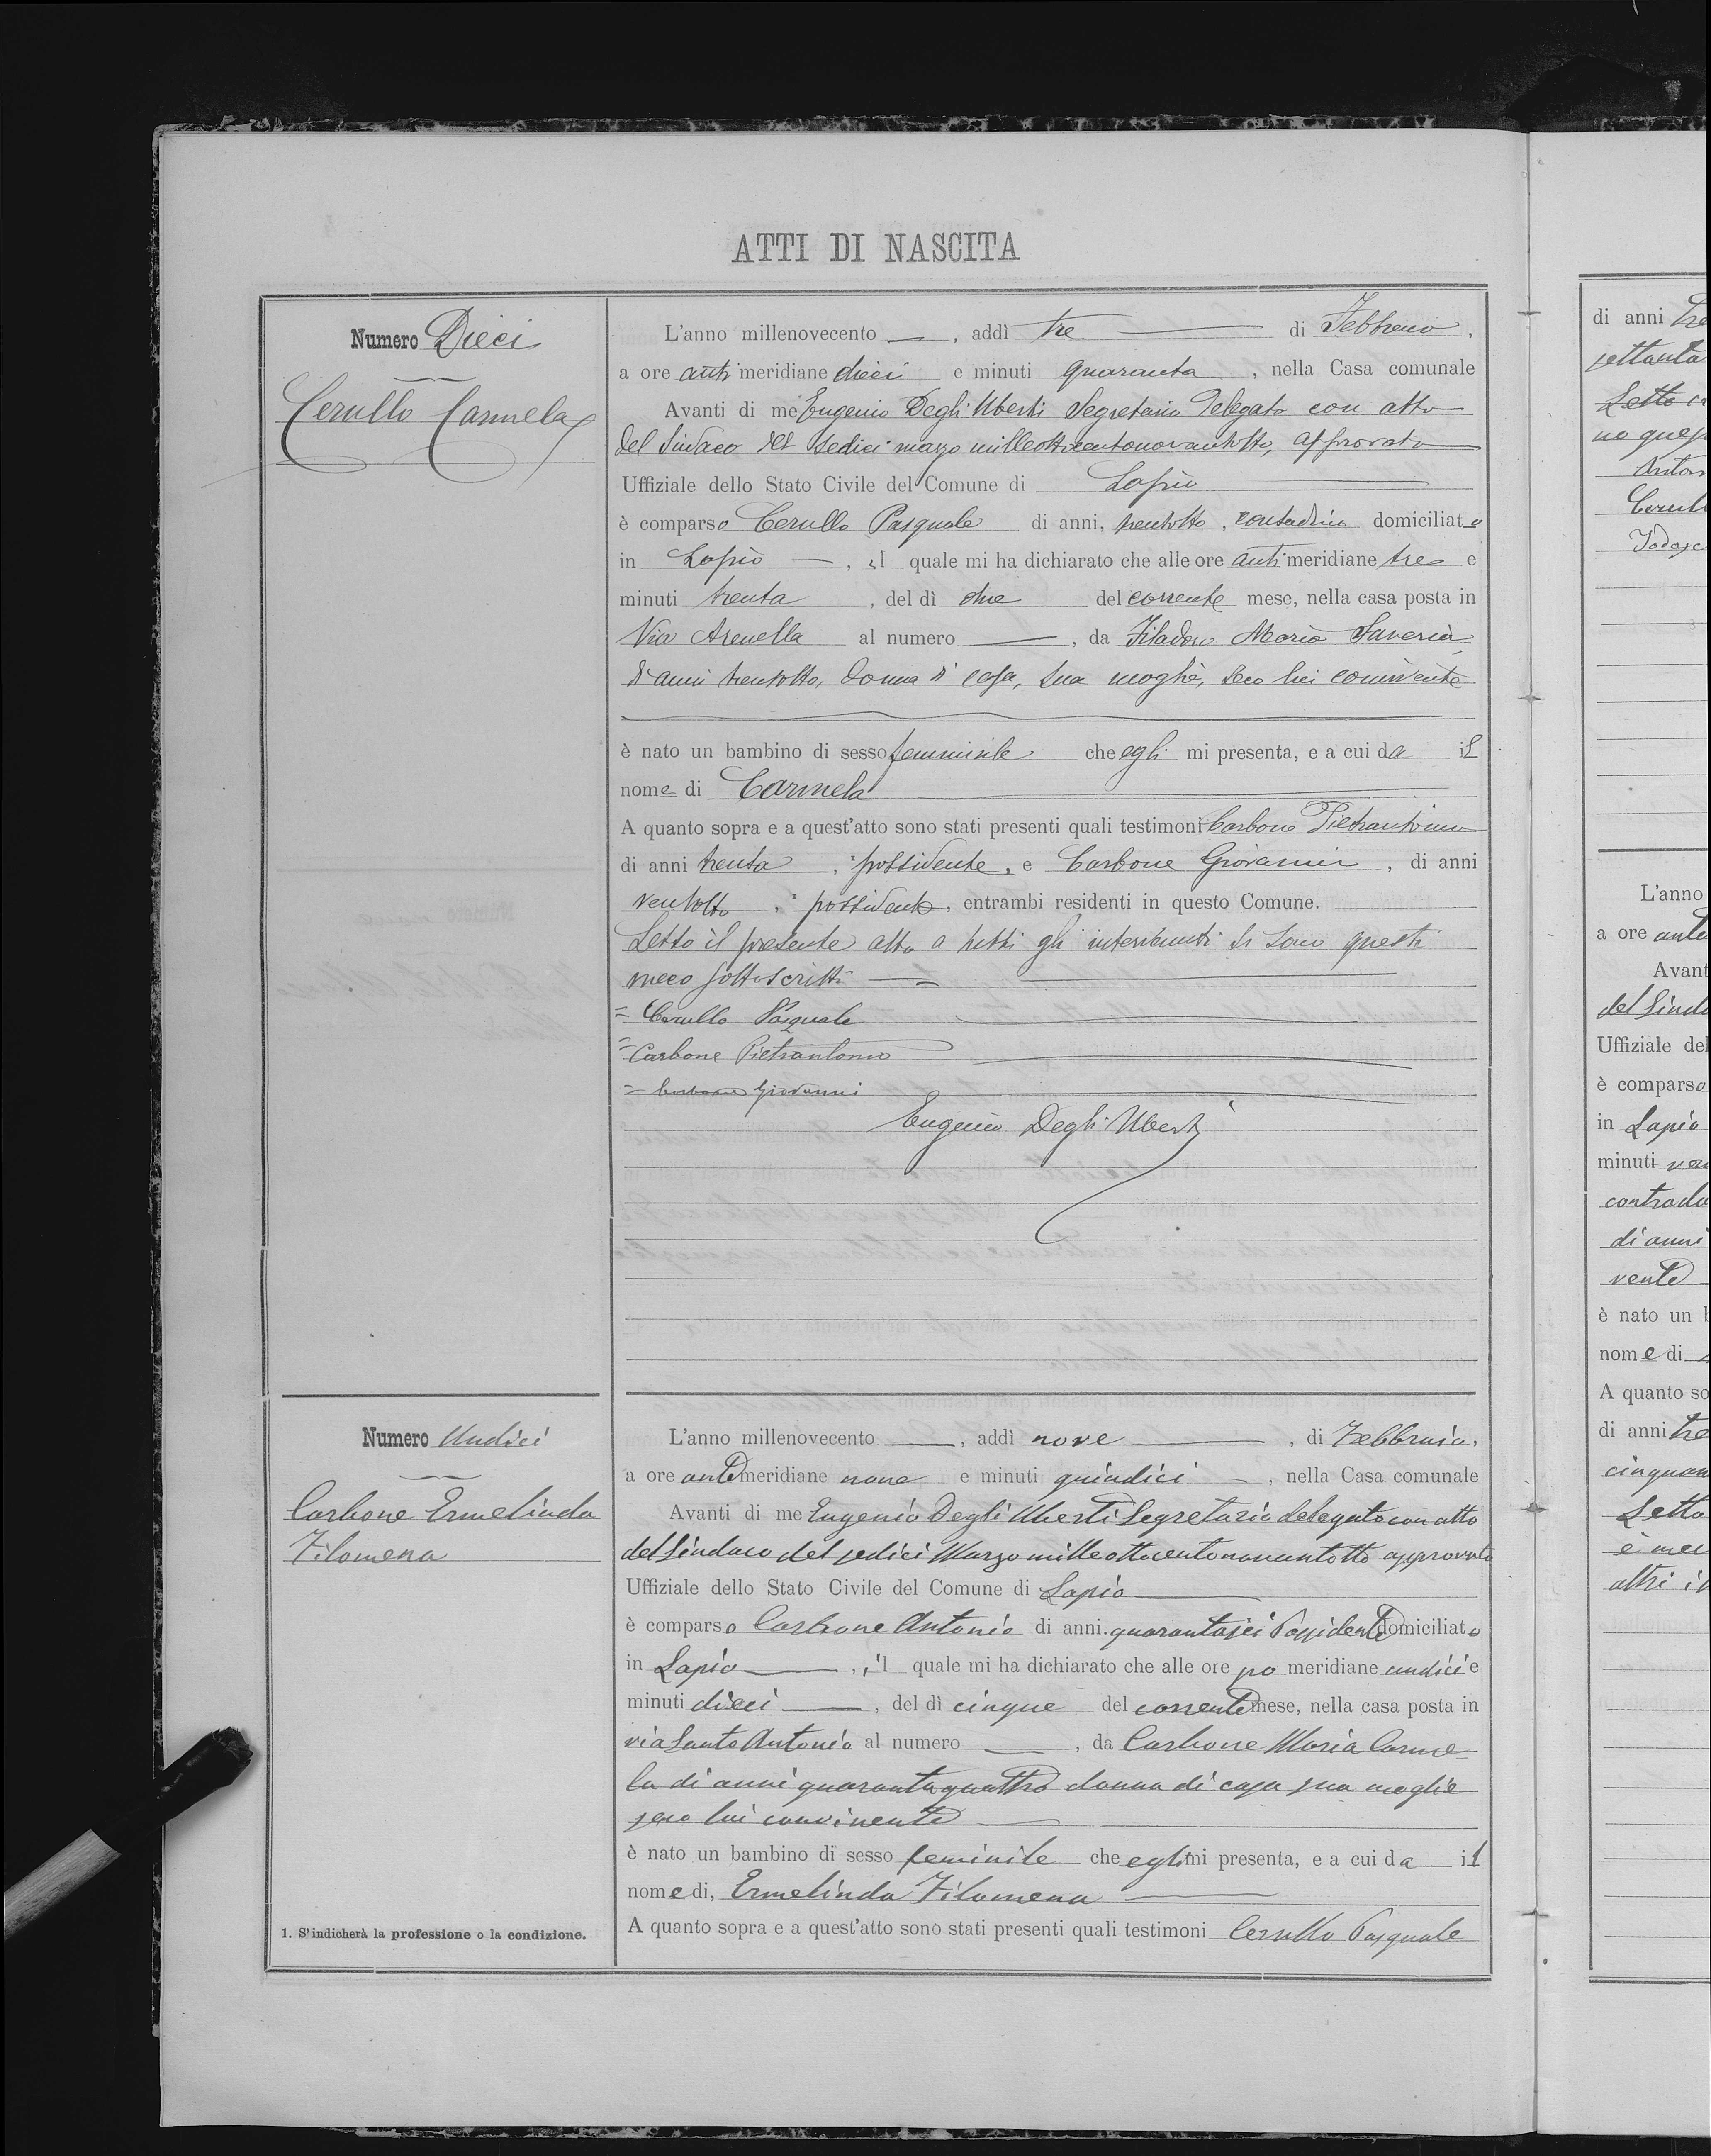 ATTI DI NASCITA
Numero Dieci
Cerullo Carmela
L'anno millenovecento —, addì tre — di Febbraio,
a ore anti meridiane dieci e minuti quaranta, nella Casa comunale
Avanti di me Eugenio Degli Uberti Segretario Delegato con atto
del Sindaco del sedici marzo milleottocentonovantotto, approvato
Uffiziale dello Stato Civile del Comune di Lapio
è comparso Cerullo Pasquale di anni, trentotto, contadino domiciliato
in Lapio —, il quale mi ha dichiarato che alle ore anti meridiane tre e
minuti trenta, del dì due del corrente mese, nella casa posta in
Via Arenella al numero —, da Filadoro Maria Saveria
di anni trentotto, donna di casa, sua moglie, seco lui convivente
è nato un bambino di sesso femminile che egli mi presenta, e a cui da il
nome di Carmela
A quanto sopra e a quest'atto sono stati presenti quali testimoni Carbone Pietrantonio
di anni trenta, possidente, e Carbone Giovanni, di anni
ventotto, possidente, entrambi residenti in questo Comune.
Letto il presente atto a tutti gli intervenuti si sono questi
meco sottoscritti —
= Cerullo Pasquale
= Carbone Pietrantonio
= Carbone Giovanni
Eugenio Degli Uberti
Numero Undici
Carbone Ermelinda
Filomena
L'anno millenovecento —, addì nove —, di Febbraio,
a ore antemeridiane nove e minuti quindici —, nella Casa comunale
Avanti di me Eugenio Degli Uberti Segretario delegato con atto
del Sindaco del sedici Marzo milleottocentonovantotto approvato
Uffiziale dello Stato Civile del Comune di Lapio
è comparso Carbone Antonio di anni quarantasei Possidente domiciliato
in Lapio —, il quale mi ha dichiarato che alle ore po meridiane undici e
minuti dieci —, del dì cinque del corrente mese, nella casa posta in
via Santo Antonio al numero —, da Carbone Maria Carme-
la di anni quarantaquattro donna di casa sua moglie
seco lui convivente
è nato un bambino di sesso feminile che egli mi presenta, e a cui da il
nome di, Ermelinda Filomena
A quanto sopra e a quest'atto sono stati presenti quali testimoni Cerullo Pasquale
1. S'indicherà la professione o la condizione.
di anni
settanta
Letto
no
Lapio
L'anno
a ore ante
Avant
del Sinda
Uffiziale del
è comparso
in Lapio
minuti
contrada
di anni
vente
è nato un
nome di
A quanto so
di anni tre
cinquan
Letto
e mec
altri